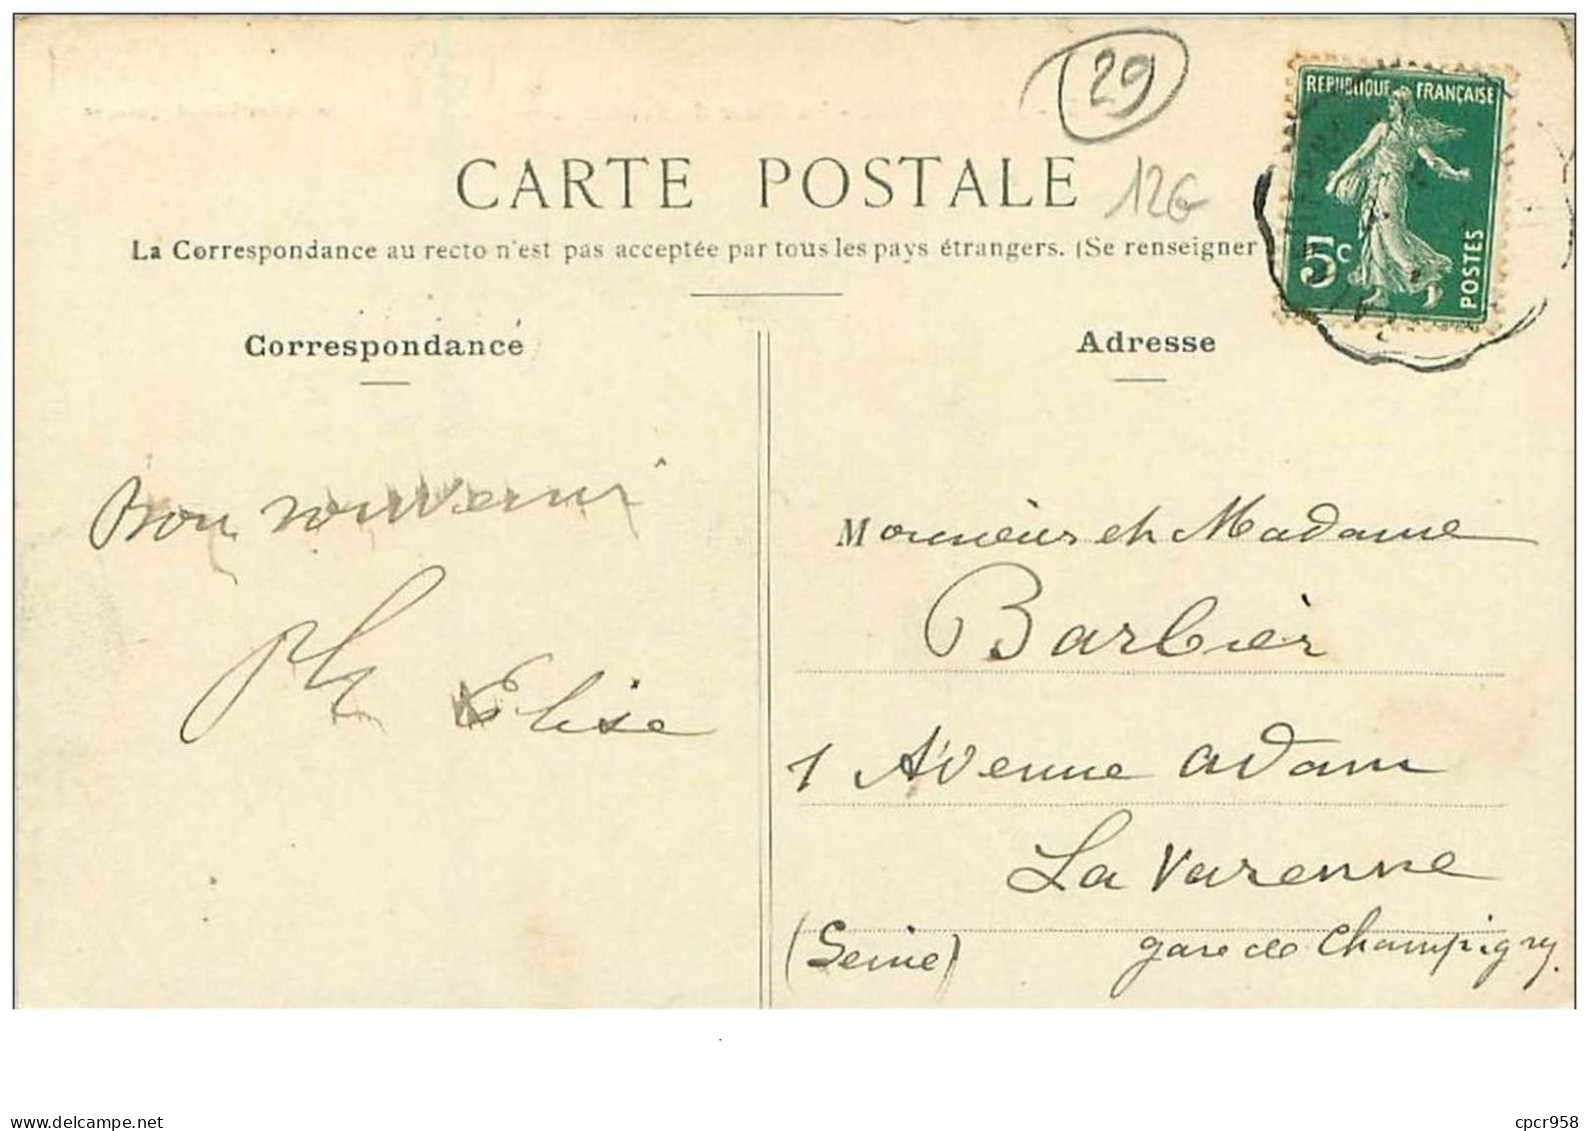 29
REPUBLIQUE FRANÇAISE
5c
POSTES
CARTE POSTALE
12€
La Correspondance au recto n'est pas acceptée par tous les pays étrangers. (Se renseigner
Correspondance
Adresse
Bon souvenir
Elise
Monsieur et Madame
Barbier
1 Avenue Adam
La Varenne
(Seine) gare de Champigny.
http://www.delcampe.net
cpcr958